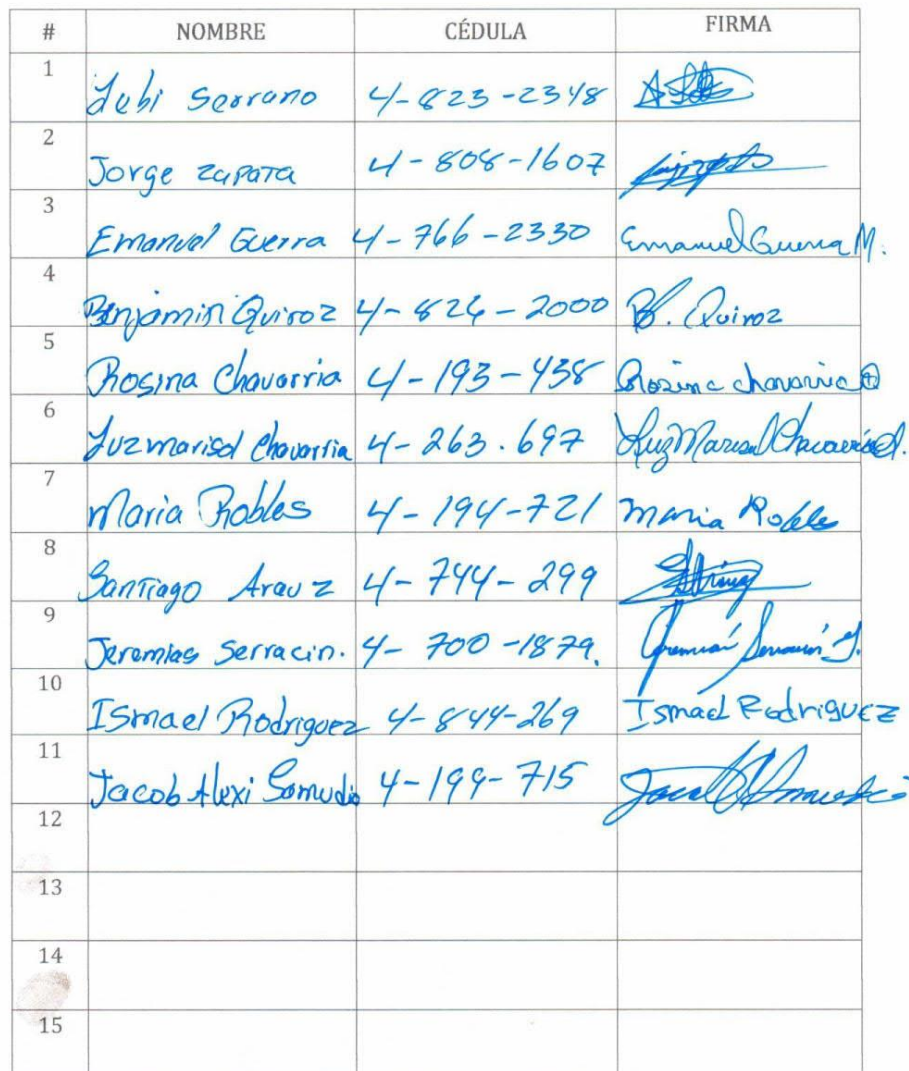 # NOMBRE CÉDULA FIRMA
1 Lubi Serrano 4-823-2348
2 Jorge Zapata 4-808-1607
3 Emanuel Guerra 4-766-2330 Emanuel Guerra M.
4 Benjamin Quiroz 4-826-2000 B. Quiroz
5 Rosina Chavarria 4-193-438 Rosina chavarria
6 Luzmarisol Chavarria 4-263.697 Luz Marisol Chavarria
7 Maria Robles 4-194-721 Maria Robles
8 Santiago Arauz 4-744-299
9 Jeremias Serracin. 4-700-1879.
10 Ismael Rodriguez 4-844-269 Ismael Rodriguez
11 Jacob Alexi Samudio 4-199-715
12
13
14
15